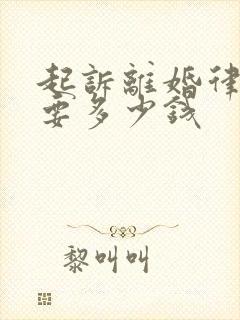 起訴離婚律
要多少錢
黎叫叫